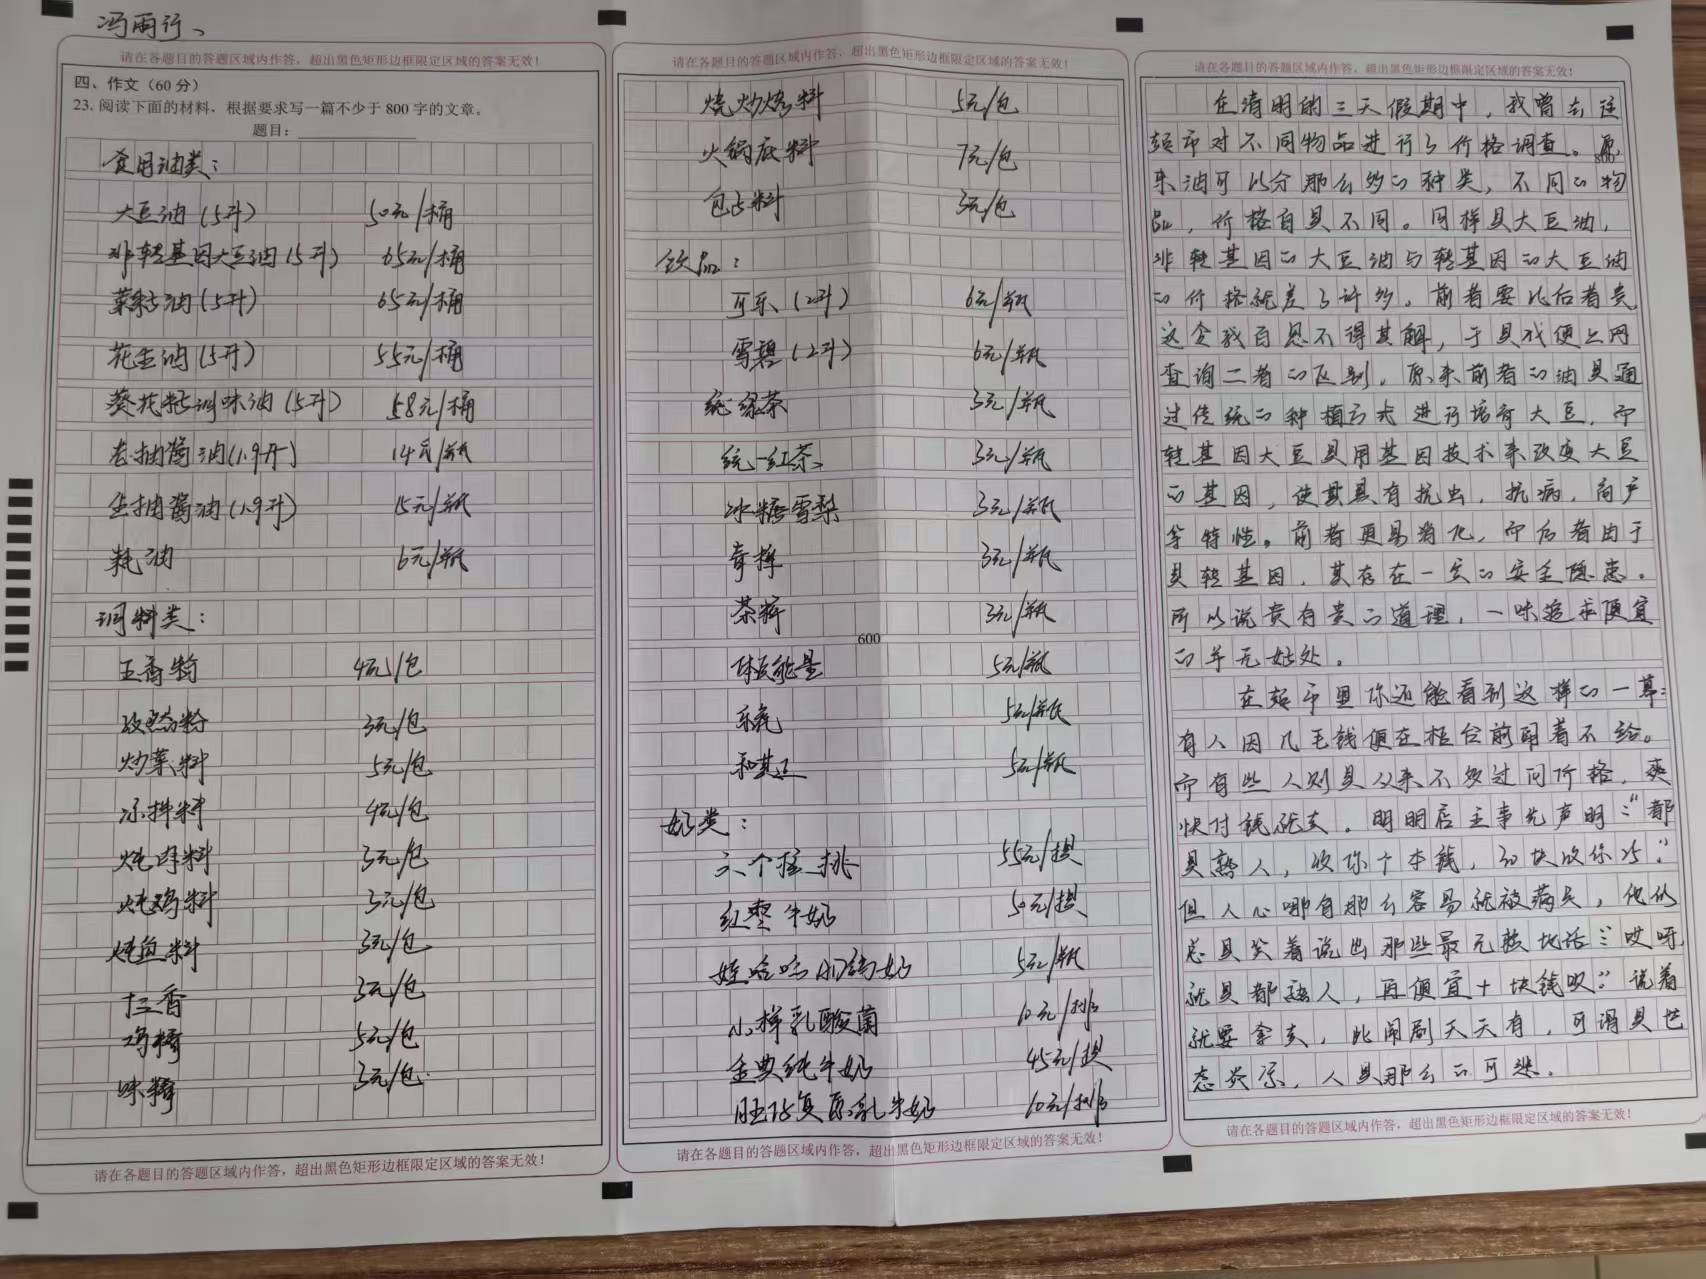 冯雨行、
请在各题目的答题区域内作答，超出黑色矩形边框限定区域的答案无效！
四、作文（60分）
23. 阅读下面的材料，根据要求写一篇不少于800字的文章。
题目：
食用油类：
大豆油（5升） 50元/桶
非转基因大豆油（5升） 65元/桶
菜籽油（5升） 65元/桶
花生油（5升） 55元/桶
葵花籽调味油（5升） 58元/桶
老抽酱油（1.9升） 14元/瓶
生抽酱油（1.9升） 15元/瓶
耗油 6元/瓶
调料类：
五香粉 4元/包
孜然粉 3元/包
炒菜料 5元/包
凉拌料 4元/包
炖肉料 3元/包
炖鸡料 3元/包
炖鱼料 3元/包
十三香 3元/包
鸡精 5元/包
味精 3元/包
请在各题目的答题区域内作答，超出黑色矩形边框限定区域的答案无效！
请在各题目的答题区域内作答，超出黑色矩形边框限定区域的答案无效！
烧烤料 5元/包
火锅底料 7元/包
包占料 3元/包
饮品：
可乐（2升） 6元/瓶
雪碧（2升） 6元/瓶
统绿茶 3元/瓶
统一红茶 3元/瓶
冰糖雪梨 3元/瓶
3元/瓶
茶 3元/瓶
600
体质能量 5元/瓶
乐虎 5元/瓶
和其正 5元/瓶
奶类：
六个核桃 55元/提
红枣牛奶 50元/提
娃哈哈 奶 5元/瓶
小样乳酸菌 10元/排
金典纯牛奶 45元/提
旺仔复原乳牛奶 10元/排
请在各题目的答题区域内作答，超出黑色矩形边框限定区域的答案无效！
请在各题目的答题区域内作答，超出黑色矩形边框限定区域的答案无效！
在清明的三天假期中，我曾去往
超市对不同物品进行了价格调查。原
800
来油可以分那么多的种类，不同的物
品，价格自是不同。同样是大豆油，
非转基因的大豆油与转基因的大豆油
的价格就差了许多，前者要比后者贵
这令我百思不得其解，于是我便上网
查询二者的区别，原来前者的油是通
过传统的种植方式进行培育大豆，而
转基因大豆是用基因技术来改变大豆
的基因，使其具有抗虫，抗病，高产
等特性。前者更易消化，而后者由于
是转基因，其存在一定的安全隐患。
所以说贵有贵的道理，一味追求便宜
的并无好处。
在超市里你还能看到这样的一幕：
有人因几毛钱便在柜台前闹着不给。
而有些人则是从来不多过问价格，爽
快付钱就走。明明店主事先声明：“都
是熟人，收你个本钱，30块收你25”
但人心哪有那么容易就被满足，他们
总是笑着说出那些最无赖地话：“哎呀
就是都熟人，再便宜十块钱呗”说着
就要拿走，此闹剧天天有，可谓是世
态炎凉，人是那么的可悲。
请在各题目的答题区域内作答，超出黑色矩形边框限定区域的答案无效！